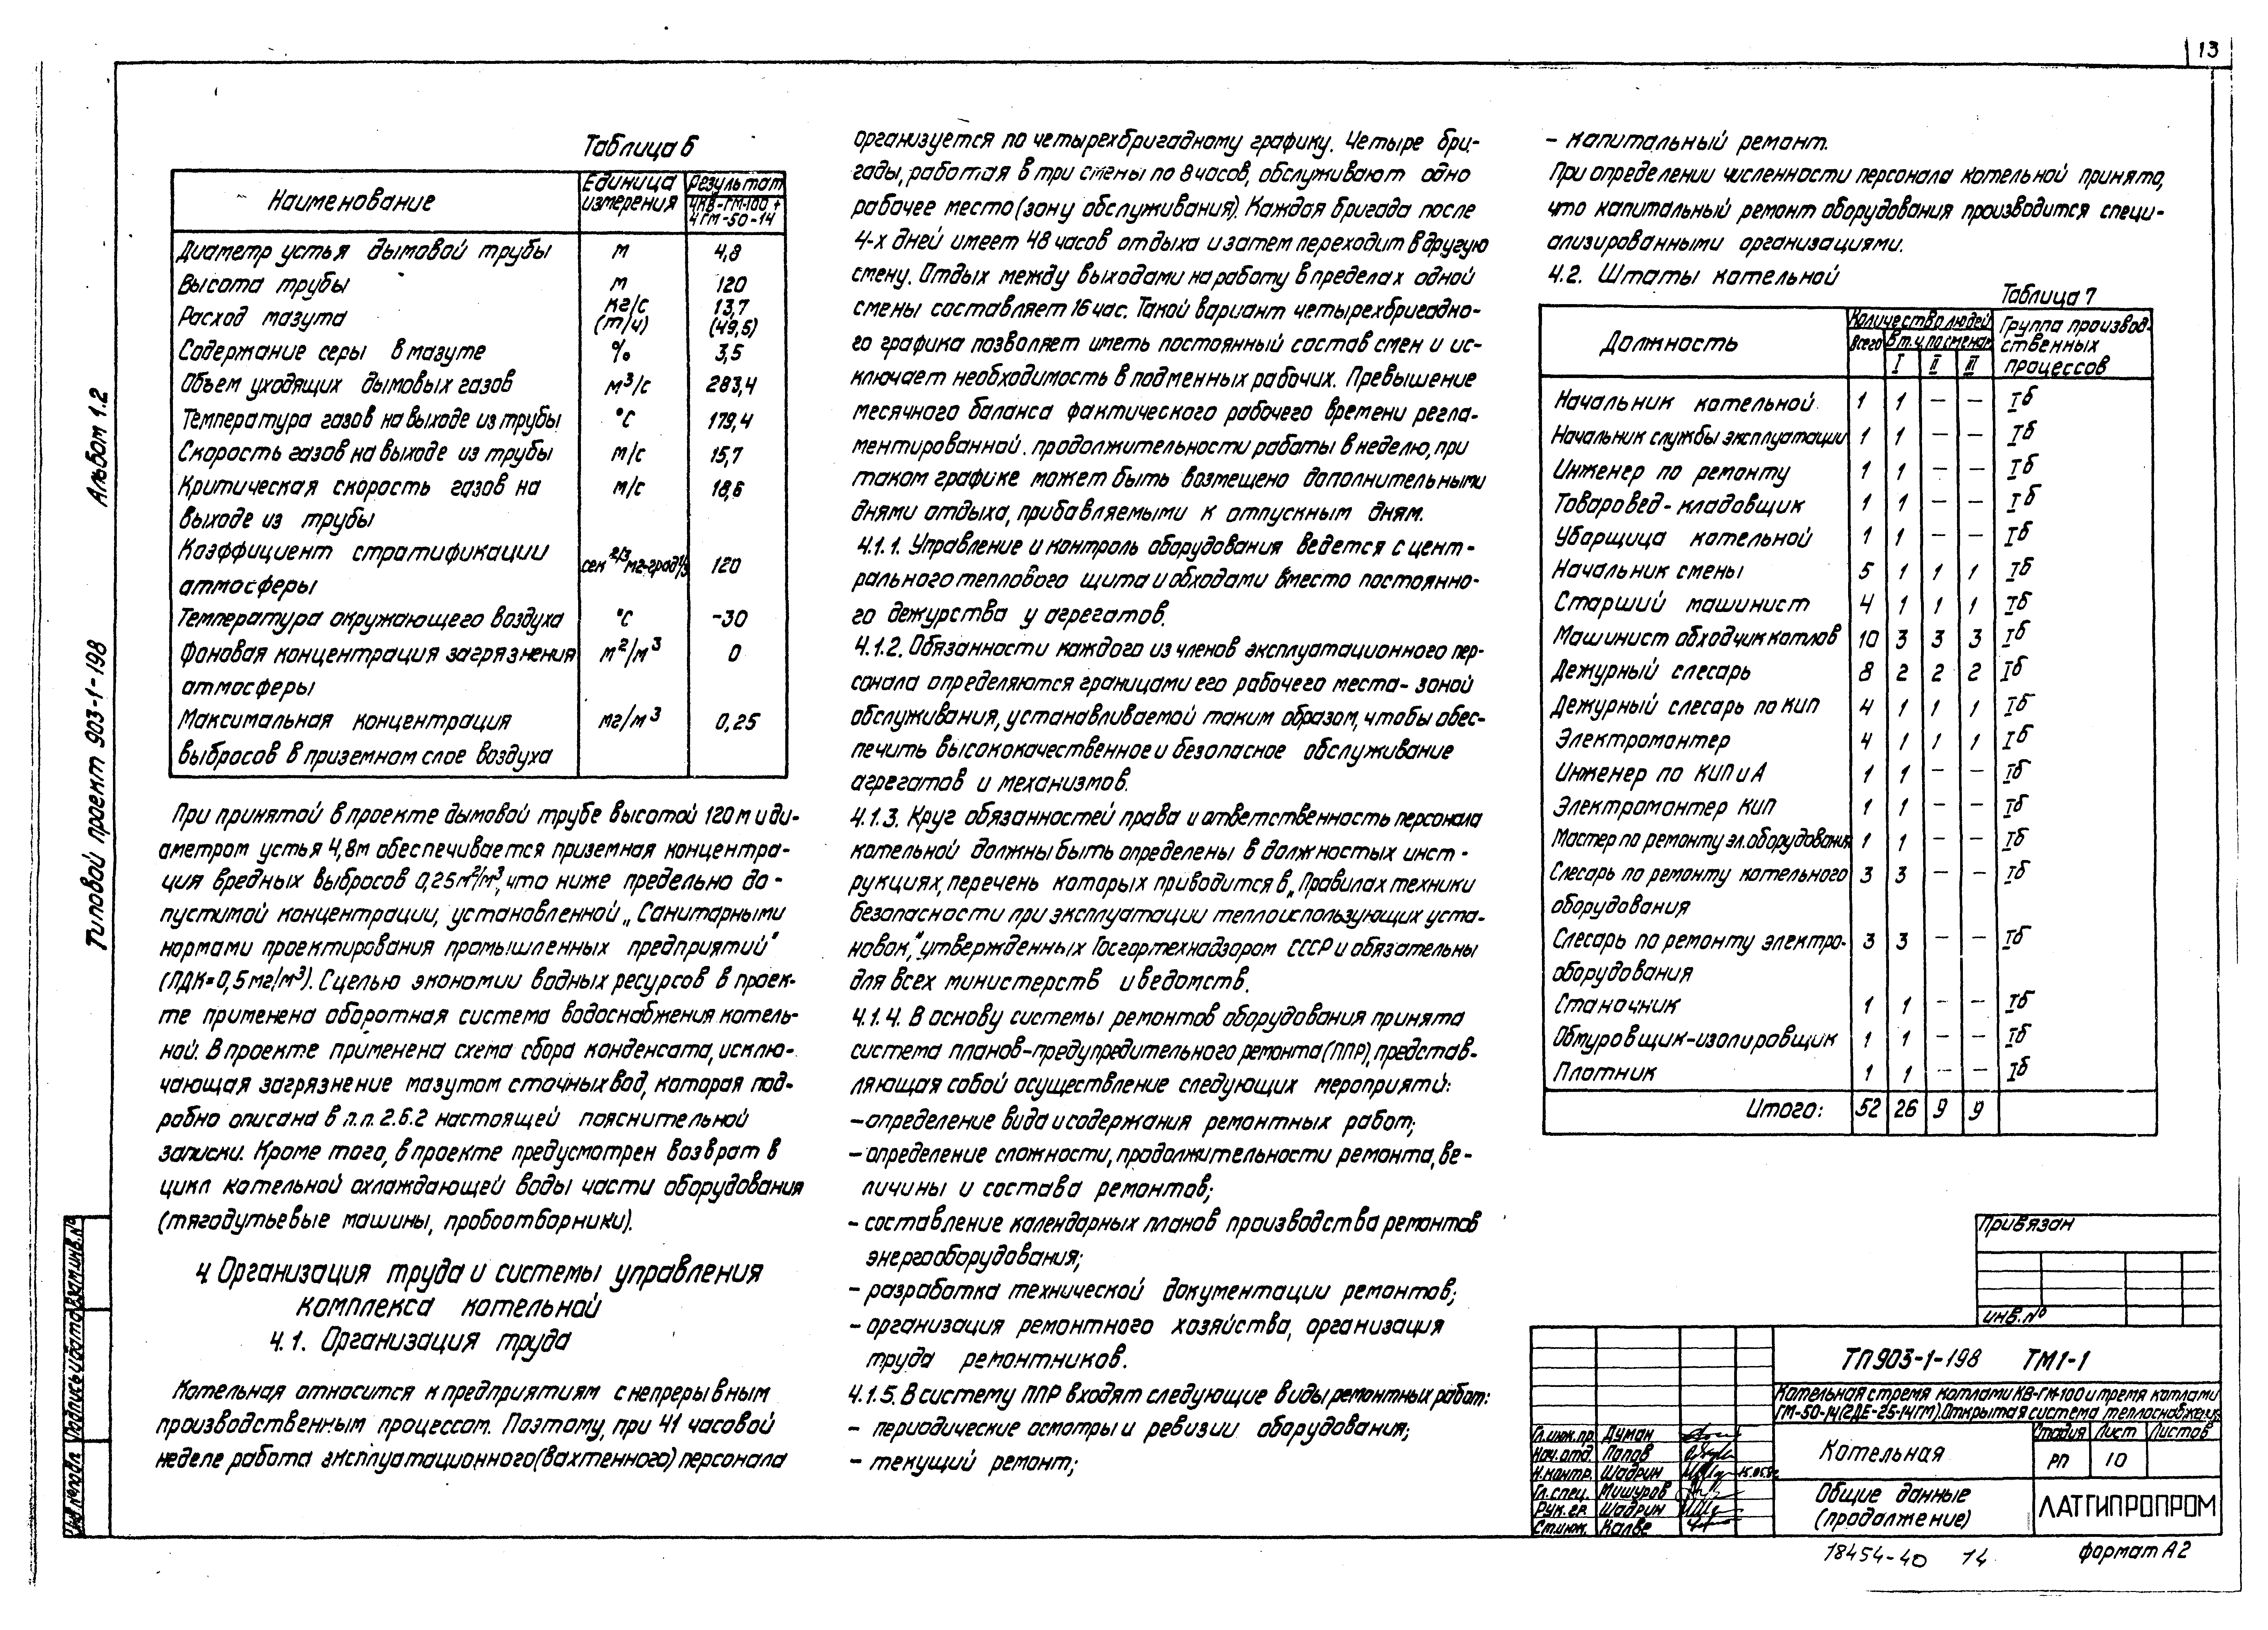 13
Альбом 1.2
Типовой проект 903-1-198
Таблица 6
Наименование | Единица измерения | Результат 4КВ-ГМ-100 + 4ГМ-50-14
Диаметр устья дымовой трубы | м | 4,8
Высота трубы | м | 120
Расход мазута | кг/с (т/ч) | 13,7 (49,5)
Содержание серы в мазуте | % | 3,5
Объем уходящих дымовых газов | м³/с | 283,4
Температура газов на выходе из трубы | °С | 179,4
Скорость газов на выходе из трубы | м/с | 15,7
Критическая скорость газов на | м/с | 18,6
выходе из трубы
Коэффициент стратификации | сек 2/3 мг·град 1/3 | 120
атмосферы
Температура окружающего воздуха | °С | -30
Фоновая концентрация загрязнения | м²/м³ | 0
атмосферы
Максимальная концентрация | мг/м³ | 0,25
выбросов в приземном слое воздуха
При принятой в проекте дымовой трубе высотой 120 м и ди-
аметром устья 4,8м обеспечивается приземная концентра-
ция вредных выбросов 0,25м²/м³, что ниже предельно до-
пустимой концентрации, установленной „Санитарными
нормами проектирования промышленных предприятий"
(ПДК=0,5мг/м³). С целью экономии водных ресурсов в проек-
те применена оборотная система водоснабжения котель-
ной. В проекте применена схема сбора конденсата, исклю-
чающая загрязнение мазутом сточных вод, которая под-
робно описана в п.п. 2.6.2 настоящей пояснительной
записки. Кроме того, в проекте предусмотрен возврат в
цикл котельной охлаждающей воды части оборудования
(тягодутьевые машины, пробоотборники).
4 Организация труда и системы управления
комплекса котельной
4.1. Организация труда
Котельная относится к предприятиям с непрерывным
производственным процессом. Поэтому, при 41 часовой
неделе работа эксплуатационного(вахтенного) персонала
организуется по четырехбригадному графику. Четыре бри-
гады, работая в три смены по 8 часов, обслуживают одно
рабочее место (зону обслуживания). Каждая бригада после
4-х дней имеет 48 часов отдыха и затем переходит в другую
смену. Отдых между выходами на работу в пределах одной
смены составляет 16 час. Такой вариант четырехбригадно-
го графика позволяет иметь постоянный состав смен и ис-
ключает необходимость в подменных рабочих. Превышение
месячного баланса фактического рабочего времени регла-
ментированной продолжительности работы в неделю, при
таком графике может быть возмещено дополнительными
днями отдыха, прибавляемыми к отпускным дням.
4.1.1. Управление и контроль оборудования ведется с цент-
рального теплового щита и обходами вместо постоянно-
го дежурства у агрегатов.
4.1.2. Обязанности каждого из членов эксплуатационного пер-
сонала определяются границами его рабочего места-зоной
обслуживания, устанавливаемой таким образом, чтобы обес-
печить высококачественное и безопасное обслуживание
агрегатов и механизмов.
4.1.3. Круг обязанностей права и ответственность персонала
котельной должны быть определены в должностых инст-
рукциях, перечень которых приводится в „Правилах техники
безопасности при эксплуатации теплоиспользующих уста-
новок," утвержденных Госгортехнадзором СССР и обязательны
для всех министерств и ведомств.
4.1.4. В основу системы ремонтов оборудования принята
система планов-предупредительного ремонта (ППР), представ-
ляющая собой осуществление следующих мероприяти:
-определение вида и содержания ремонтных работ;
-определение сложности, продолжительности ремонта, ве-
личины и состава ремонтов;
-составление календарных планов производства ремонтов
энергооборудования;
-разработка технической документации ремонтов;
-организация ремонтного хозяйства, организация
труда ремонтников.
4.1.5. В систему ППР входят следующие виды ремонтных работ:
- периодические осмотры и ревизии оборудования;
- текущий ремонт;
- капитальный ремонт.
При определении численности персонала котельной принято,
что капитальный ремонт оборудования производится специ-
ализированными организациями.
4.2. Штаты котельной
Таблица 7
Должность | Количество людей | Всего | В т.ч. по сменам | I | II | III | Группа производ-ственных процессов
Начальник котельной | 1 | 1 | — | — | Iб
Начальник службы эксплуатации | 1 | 1 | — | — | Iб
Инженер по ремонту | 1 | 1 | — | — | Iб
Товаровед-кладовщик | 1 | 1 | — | — | Iб
Уборщица котельной | 1 | 1 | — | — | Iб
Начальник смены | 5 | 1 | 1 | 1 | Iб
Старший машинист | 4 | 1 | 1 | 1 | Iб
Машинист обходчик котлов | 10 | 3 | 3 | 3 | Iб
Дежурный слесарь | 8 | 2 | 2 | 2 | Iб
Дежурный слесарь по КИП | 4 | 1 | 1 | 1 | Iб
Электромонтер | 4 | 1 | 1 | 1 | Iб
Инженер по КИП и А | 1 | 1 | — | — | Iб
Электромонтер КИП | 1 | 1 | — | — | Iб
Мастер по ремонту эл.оборудования | 1 | 1 | — | — | Iб
Слесарь по ремонту котельного | 3 | 3 | — | — | Iб
оборудования
Слесарь по ремонту электро- | 3 | 3 | — | — | Iб
оборудования
Станочник | 1 | 1 | — | — | Iб
Обмуровщик-изолировщик | 1 | 1 | — | — | Iб
Плотник | 1 | 1 | — | — | Iб
Итого: | 52 | 26 | 9 | 9
Привязан
инв.№
ТП903-1-198 ТМ1-1
Котельная с тремя котлами КВ-ГМ-100 и тремя котлами
ГМ-50-14(2ДЕ-25-14ГМ). Открытая система теплоснабжения
Гл.инж.пр. Думан
Нач.отд. Попов
Н.контр. Шадрин
Гл.спец. Мишуров
Рук.гр. Шадрин
Ст.инж. Калве
Котельная
Стадия | Лист | Листов
РП | 10
Общие данные
(продолжение)
ЛАТГИПРОПРОМ
18454-40 14
формат А2
Взам.инв.№
Подпись и дата
Инв.№подл.